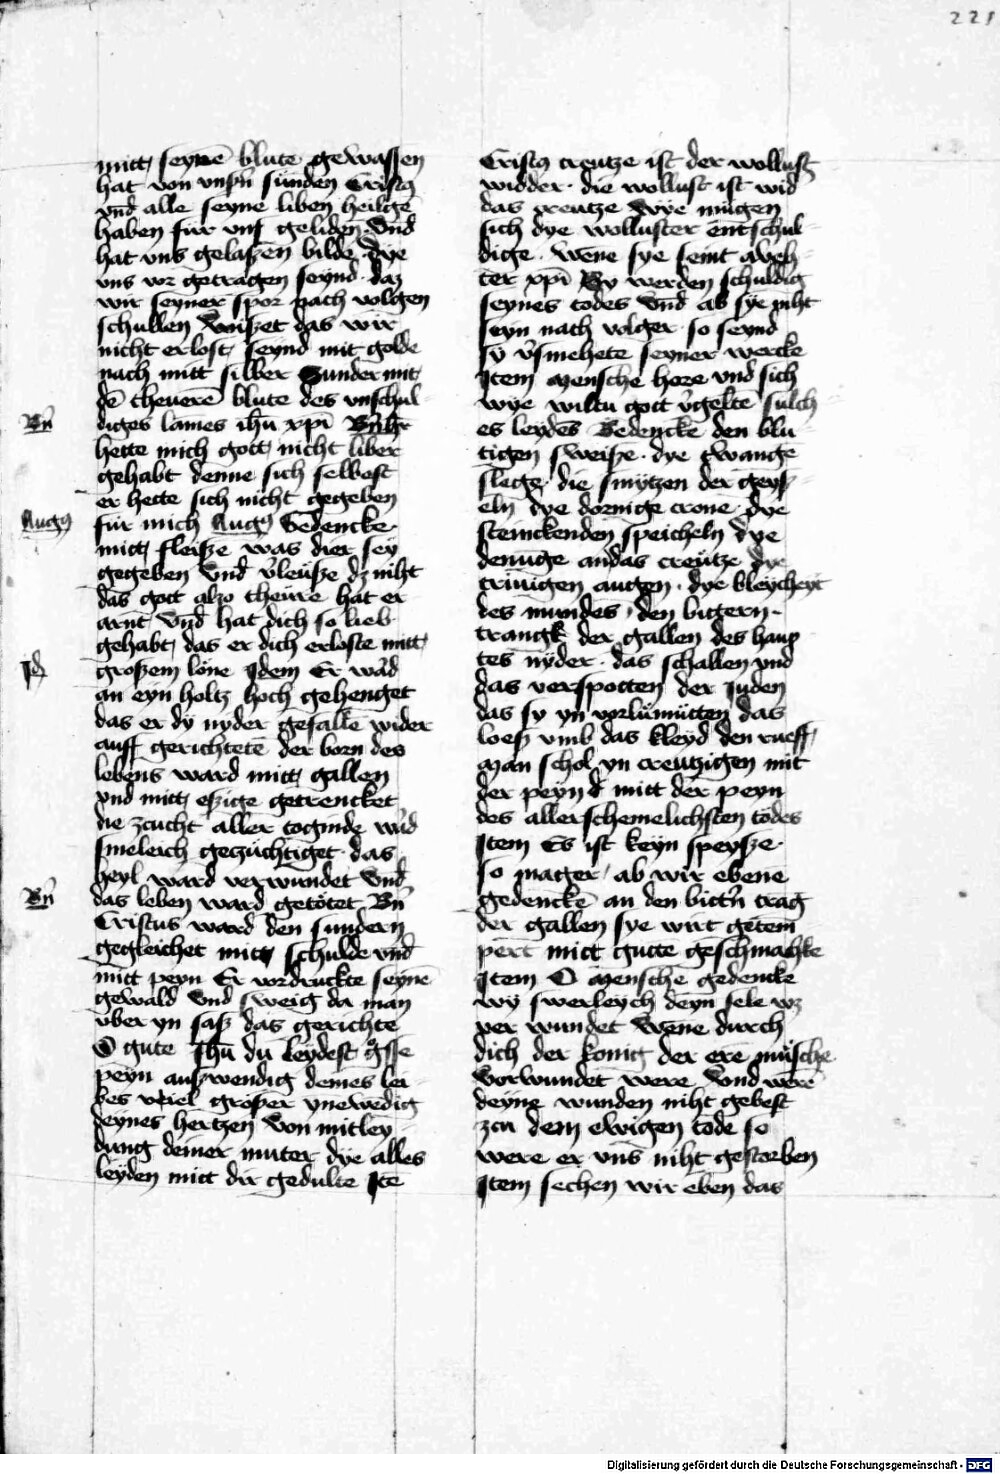 221
mitt seynē blute gewassen
hat von vnsñ sunden Cristꝯ
vnd alle seyne liben heilgē
haben fur vns geliden Vnd
hat vns gelaszen bilde dye
vns vor getragen seynd daz
wir seyner spor nach volgen
schullen Wiszet das wir
nicht erlost seynd mit golde
nach mitt silber Sunder mit
dē theuerē blute des vnschul
diges lames ihū xpī Bn̄hr
hette mich gott nicht liber
gehabt denne sich selbest
er hette sich nicht gegeben
fur mich Augꝯ Bedencke
mitt fleisze was dier sey
gegeben Vnd v̓leusze dz niht
das gott alzo theure hat er
arnt Vnd hat dich so lieb
gehabt das er dich erloste mitt
groszem lone Idem Er wa᷒d
an eyn holtz hoch gehenget
das er dy nyder gefallē wider
auff gerichtetē der born des
lebens ward mitt gallen
vnd mitt eszige getrencket
die zcucht aller toginde wu᷒d
smeleich geczuchtiget das
heyl ward verwundet Vnd
das leben ward getotet Bn̄
Cristus ward den sundern
gegleichet mitt schulde vnd
mitt peyn Er vordruckte seynē
gewald Vnd sweig da man
vber yn sasz das gerichte
O gute Jhū du leydest gͦsse
peyn auszwendig demes lei
bes vil groszer ynewedig
deynes hertzen Von mitley
dung deiner muter dye alles
leyden mitt dir gedulte Itē
Bn̄
Augꝯ
Jd
Bn̄
Cristꝯ creutze ist der wollust
widder die wollust ist wid
das creutze Wye mugen
sich dye wolluster entschul
dige wene sye seint
ter xpī Sy werden schuldig
seynes todes Vnd ab sye niht
seyn nach volger so seynd
sy v̓smehete seyner wercke
Item mensche hore vnd sich
wye wiltu gott v̓gelte sulch
es leydes Bedencke den blu
tigen sweisze dye twange
slege die smytzen der geys
eln dye dornige crone dye
stinckenden speicheln dye
denuge an das creutze dye
trinigen augen dye bleycheyt
des mundes den bittern
trangk der gallen des haup
tes nyder das schallen vnd
das verspotten der Juden
das sy yn vorlumutten das
loesz vmb das kleyd den rueff
man schol yn creutzigen mit
der peyn d mitt der peyn
des allerschemelichsten todes
Item Es ist keyn speysze
so mager ab wir ebene
gedenckē an den bitt̓n trāg
der gallen sye wirt getem
pert mitt gutte geschmahke
Item O mensche gedencke
wy swerleych deyn sele wz
ver wundet Wene durch
dich der konig der ere musche
Vorwundet were Vnd were
deyne wunden niht gebest
zcu dem ewigen tode so
were er vns niht gestorben
Item sechen wir eben das
Digitalisierung gefördert durch die Deutsche Forschungsgemeinschaft - DFG